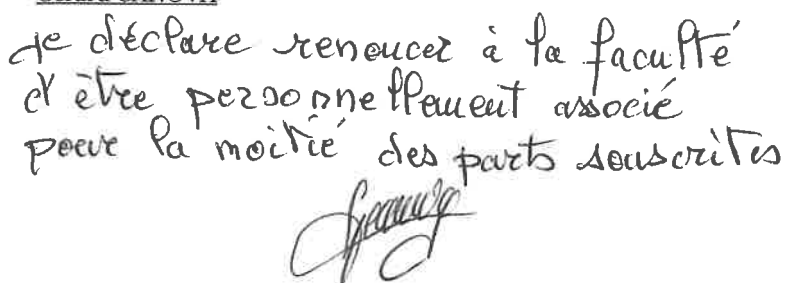 Je déclare renoncer à la faculté
d'être personnellement associé
pour la moitié des parts souscrites